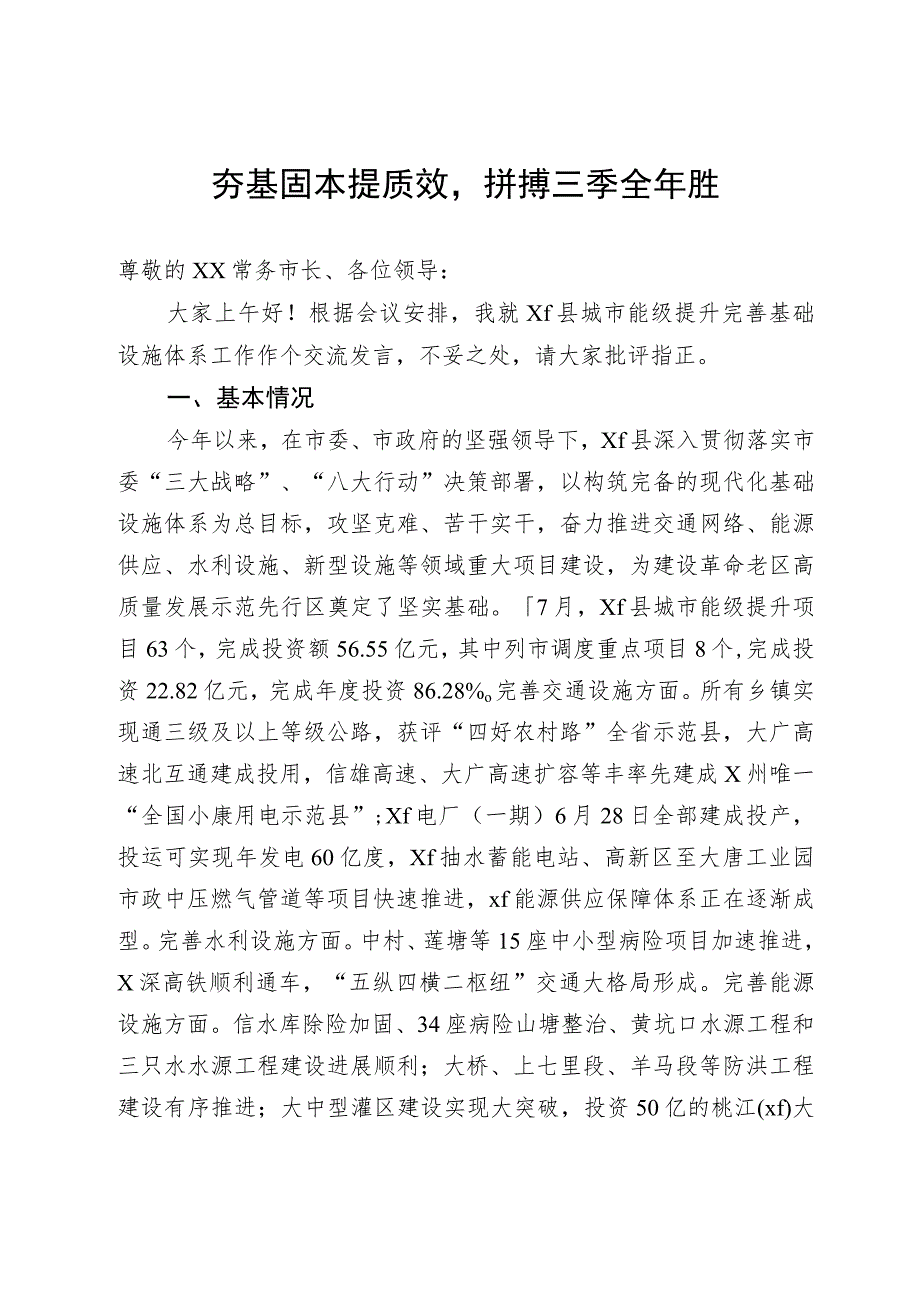 夯基固本提质效，拼搏三季全年胜
尊敬的 XX 常务市长、各位领导：
大家上午好！根据会议安排，我就 Xf 县城市能级提升完善基础
设施体系工作作个交流发言，不妥之处，请大家批评指正。
一、基本情况
今年以来，在市委、市政府的坚强领导下，Xf 县深入贯彻落实市
委“三大战略”、“八大行动”决策部署，以构筑完备的现代化基础
设施体系为总目标，攻坚克难、苦干实干，奋力推进交通网络、能源
供应、水利设施、新型设施等领域重大项目建设，为建设革命老区高
质量发展示范先行区奠定了坚实基础。「7 月，Xf 县城市能级提升项
目 63 个，完成投资额 56.55 亿元，其中列市调度重点项目 8 个,完成投
资 22.82 亿元，完成年度投资 86.28%。完善交通设施方面。所有乡镇实
现通三级及以上等级公路，获评“四好农村路”全省示范县，大广高
速北互通建成投用，信雄高速、大广高速扩容等丰率先建成 X 州唯一
“全国小康用电示范县”;Xf 电厂（一期）6 月 28 日全部建成投产，
投运可实现年发电 60 亿度，Xf 抽水蓄能电站、高新区至大唐工业园
市政中压燃气管道等项目快速推进，xf 能源供应保障体系正在逐渐成
型。完善水利设施方面。中村、莲塘等 15 座中小型病险项目加速推进，
X 深高铁顺利通车，“五纵四横二枢纽”交通大格局形成。完善能源
设施方面。信水库除险加固、34 座病险山塘整治、黄坑口水源工程和
三只水水源工程建设进展顺利；大桥、上七里段、羊马段等防洪工程
建设有序推进；大中型灌区建设实现大突破，投资 50 亿的桃江(xf)大